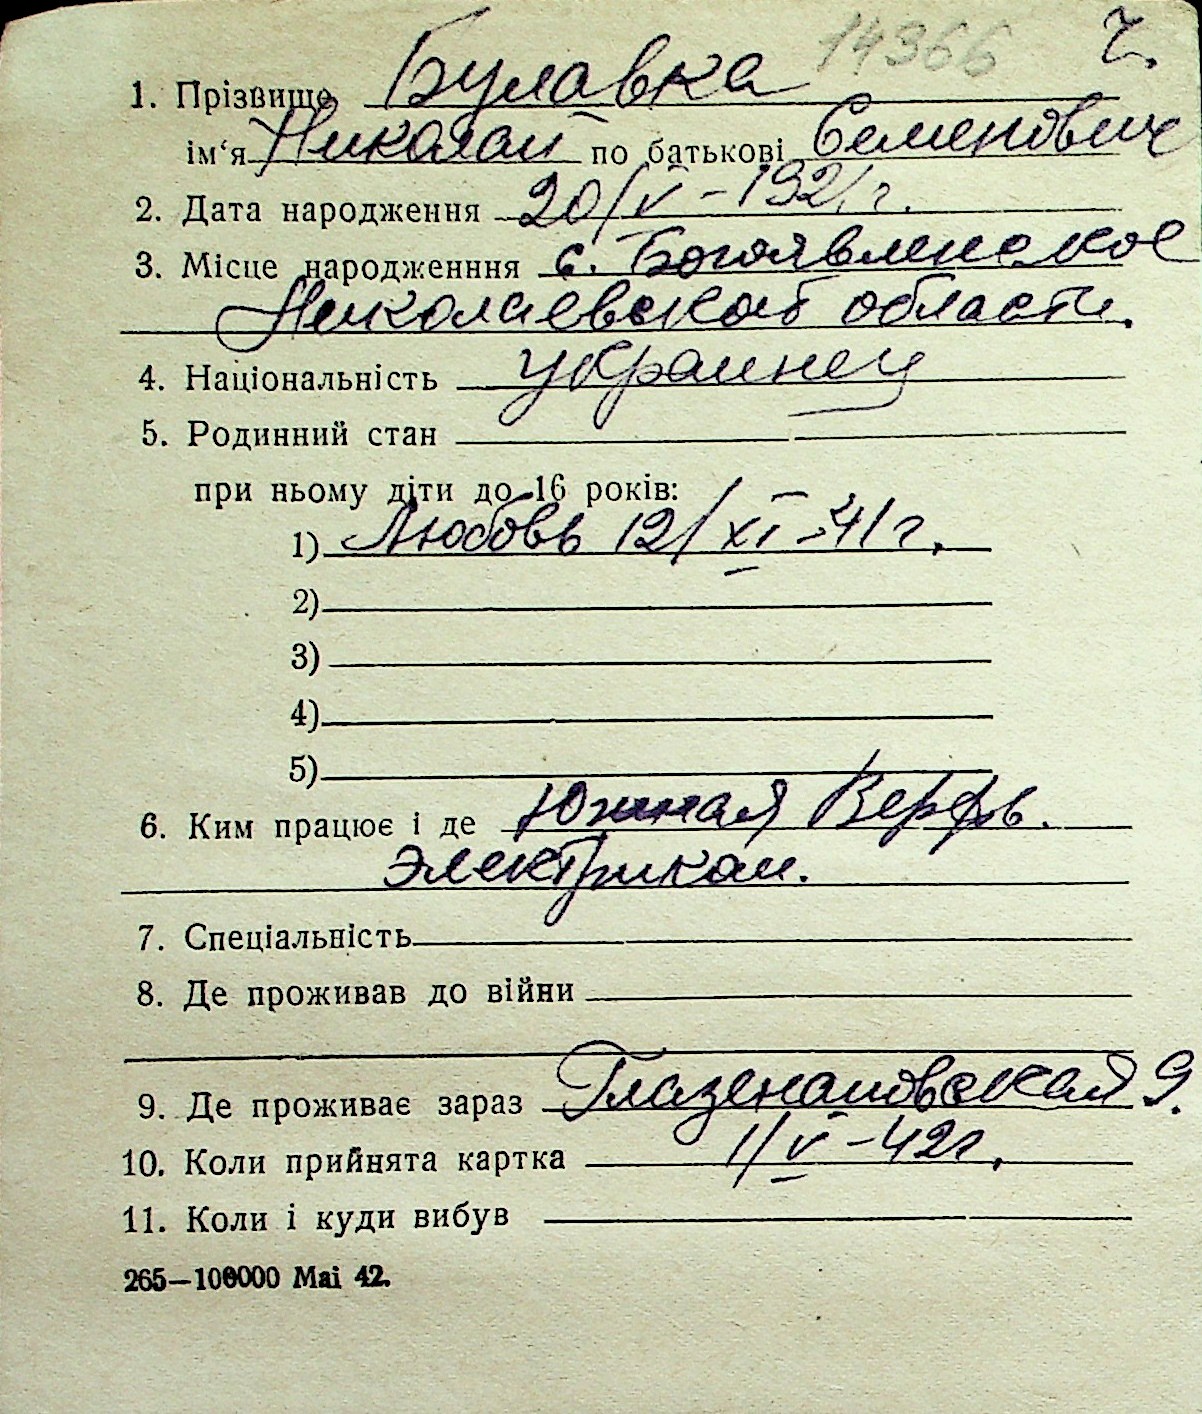 14366 Ч.
1. Прізвище Булавка
ім‘я Николай по батькові Семенович
2. Дата народження 20/V – 1921 г.
3. Місце народженння с. Богоявленское
Николаевской области.
4. Національність украинец
5. Родинний стан
при ньому діти до 16 років:
1) Любовь 12/XI – 41 г.
2)
3)
4)
5)
6. Ким працює і де Южная Верфь.
электриком.
7. Спеціальність
8. Де проживав до війни
9. Де проживає зараз Глазенаповская 9.
10. Коли прийнята картка 1/V – 42 г.
11. Коли і куди вибув
265—100000 Mai 42.